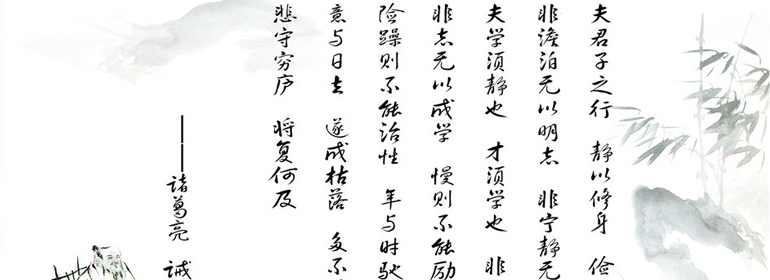 夫君子之行 静以修身 俭
非澹泊无以明志 非宁静无
夫学须静也 才须学也 非
非志无以成学 慢则不能励
险躁则不能治性 年与时驰
意与日去 遂成枯落 多不
悲守穷庐 将复何及
——诸葛亮 诫